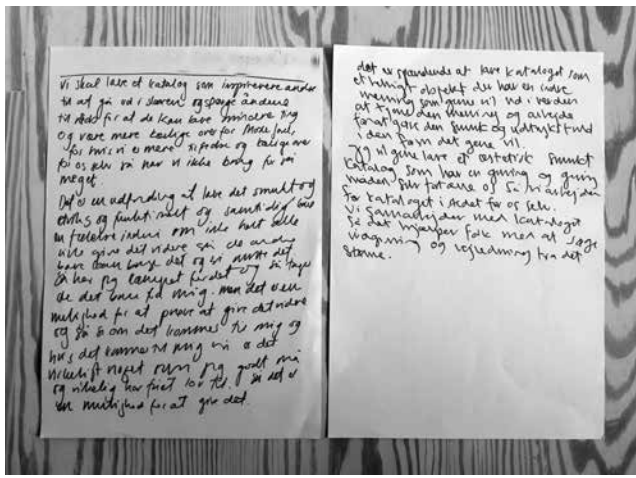 vi skal lave et katalog som inspirerere andre
til at gå ud i skoven og spørge ånderne
til råds for at de kan lave mindre ting
og være mere kærlige over for Moder Jord,
for hvis vi er mere tilfredse og kærlige over
for os selv så har vi ikke brug for så
meget.
Det er en udfordring at lave det smukt og
og funktionelt og samtidig give
en følelse indeni som ikke helt
ikke give det videre så de andre
bare kan det og så det
så har jeg det og så tager
de det bare fra mig. men det er en
mulighed for at prøve at give det videre
og så se om det kommer til mig og
hvis det kommer til mig så er det
virkelig noget som jeg godt må
og virkelig har fået lov til. så det er
en mulighed for at give det.
det er spændende at lave kataloget som
et helligt objekt der har en indre
mening som gerne vil ud i verden
at tjene den mening og arbejde
for at gøre den smuk og udtryksfuld
i den form det gerne vil.
Jeg vil gerne lave et æstetisk smukt
katalog som har en mening og
måden. Så vi arbejder
for kataloget i stedet for os selv.
Vi samarbejder med kataloget
så det hjælper folk med at søge
og vejledning fra det
større.